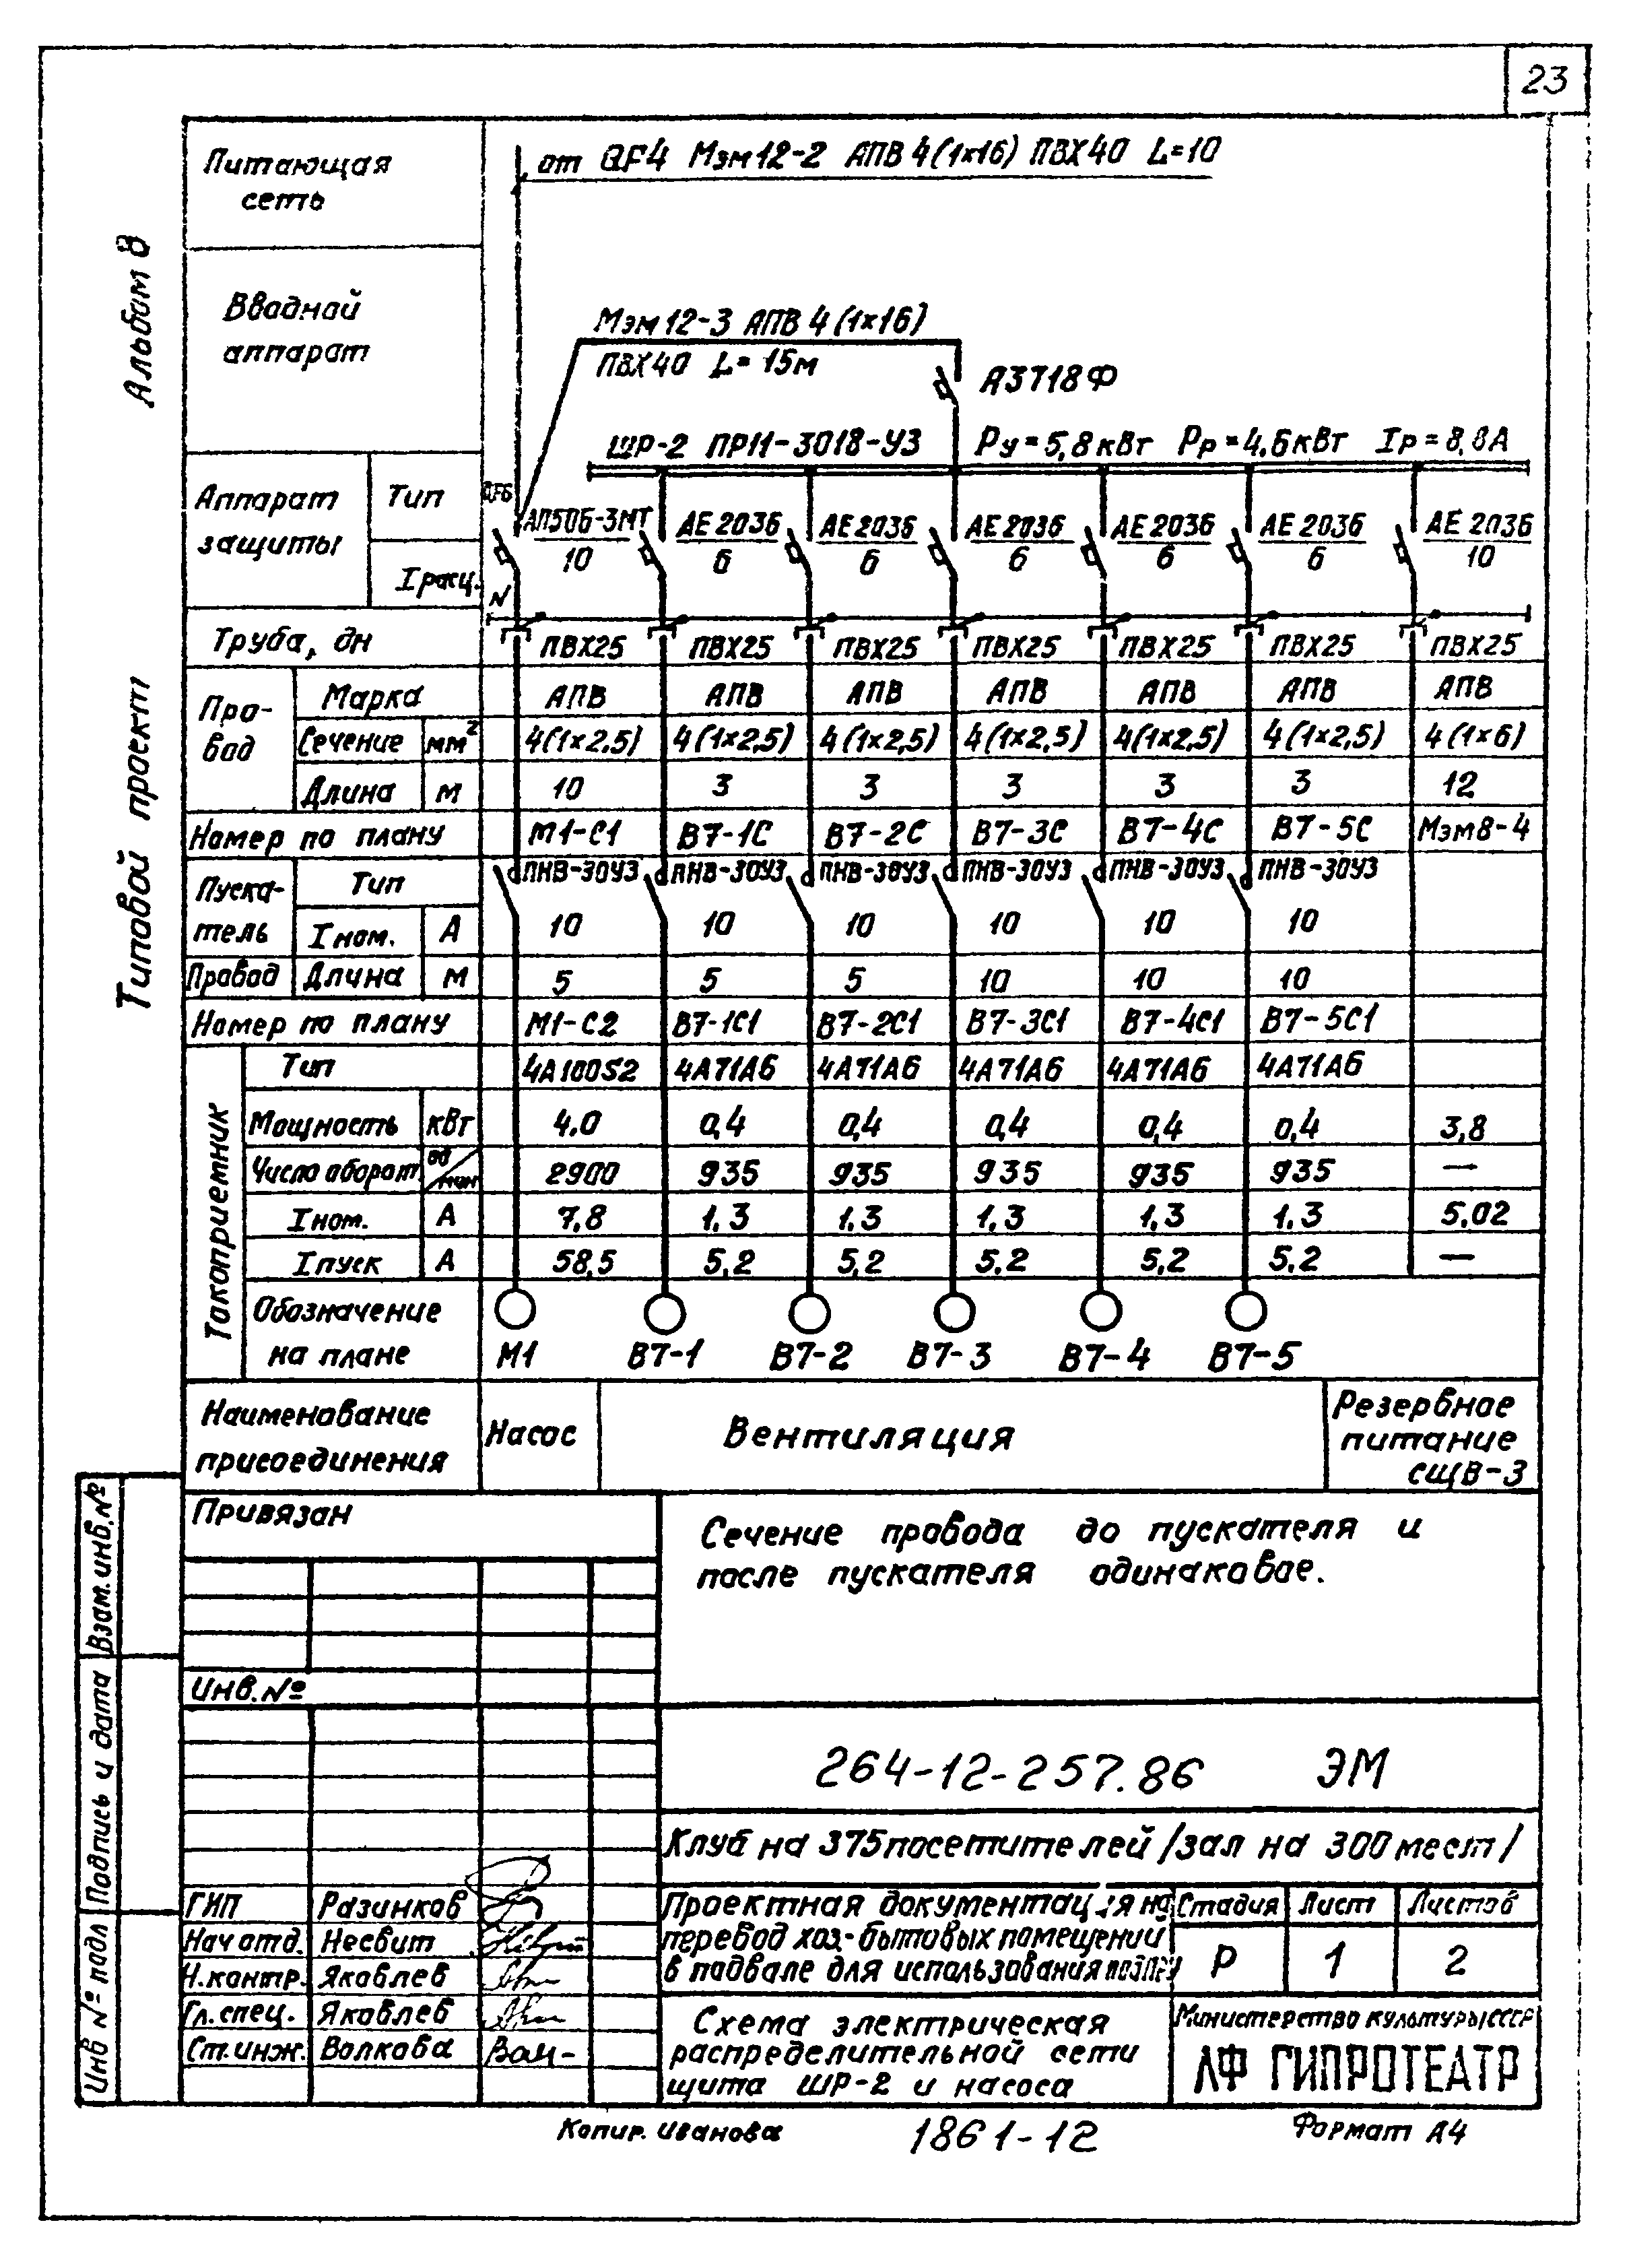 23
Альбом 8
Типовой проект
Питающая
сеть
от QF4 Мэм12-2 АПВ 4(1×16) ПВХ40 L=10
Вводнай
аппарат
Мэм12-3 АПВ 4(1×16)
ПВХ40 L=15м
А3718Ф
ШР-2 ПР11-3018-У3 Ру=5,8кВт Рр=4,6кВт Iр=8,8А
Аппарат
защиты
Тип
QF6 АП50Б-3МТ АЕ2036 АЕ2036 АЕ2036 АЕ2036 АЕ2036 АЕ2036
Iрасц. 10 6 6 6 6 6 10
N
Труба, dн ПВХ25 ПВХ25 ПВХ25 ПВХ25 ПВХ25 ПВХ25 ПВХ25
Про-
вод
Марка АПВ АПВ АПВ АПВ АПВ АПВ АПВ
Сечение мм² 4(1×2,5) 4(1×2,5) 4(1×2,5) 4(1×2,5) 4(1×2,5) 4(1×2,5) 4(1×6)
Длина м 10 3 3 3 3 3 12
Номер по плану М1-С1 В7-1С В7-2С В7-3С В7-4С В7-5С Мэм8-4
Пуска-
тель
Тип ПНВ-30У3 ПНВ-30У3 ПНВ-30У3 ПНВ-30У3 ПНВ-30У3 ПНВ-30У3
Iном. А 10 10 10 10 10 10
Провод Длина м 5 5 5 10 10 10
Номер по плану М1-С2 В7-1С1 В7-2С1 В7-3С1 В7-4С1 В7-5С1
Токоприемник
Тип 4А100S2 4А71А6 4А71А6 4А71А6 4А71А6 4А71А6
Мощность кВт 4.0 0,4 0,4 0,4 0,4 0,4 3,8
Число оборот об/мин 2900 935 935 935 935 935 —
Iном. А 7,8 1,3 1,3 1,3 1,3 1,3 5,02
Iпуск А 58,5 5,2 5,2 5,2 5,2 5,2 —
Обозначение
на плане
М1 В7-1 В7-2 В7-3 В7-4 В7-5
Наименование
присоединения
Насос
Вентиляция
Резервное
питание
СЩВ-3
Привязан
Инв.№
Сечение провода до пускателя и
после пускателя одинаковое.
264-12-257.86 ЭМ
Клуб на 375 посетителей /зал на 300 мест/
ГИП Разинков
Нач отд. Несвит
Н.контр. Яковлев
Гл.спец. Яковлев
Ст.инж. Волкова
Проектная документация на
перевод хоз-бытовых помещений
в подвале для использования под ПРУ
Стадия Лист Листов
Р 1 2
Схема электрическая
распределительной сети
щита ШР-2 и насоса
Министерство культуры СССР
ЛФ ГИПРОТЕАТР
Взам.инв.№
Подпись и дата
Инв № подл
Копир. Иванова
1861-12
Формат А4